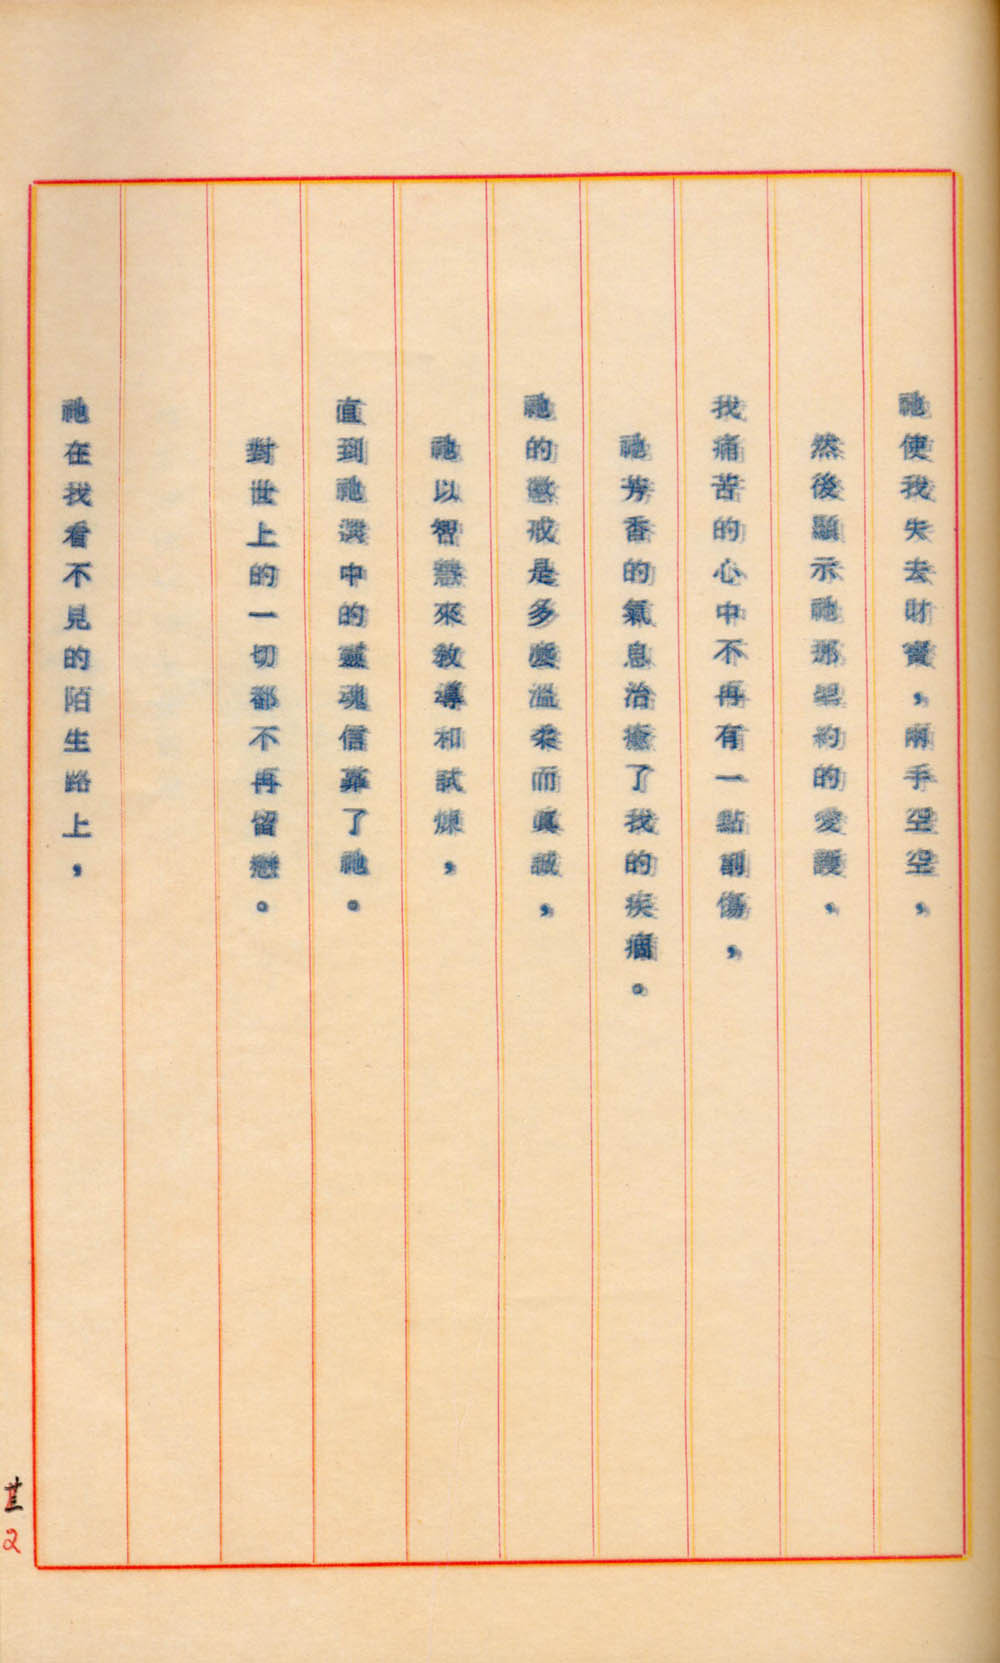 祂使我失去財寶，兩手空空，
然後顯示祂那聖約的愛護，
我痛苦的心中不再有一點創傷，
祂芳香的氣息治癒了我的疾痼。
祂的懲戒是多麼溫柔而真誠，
祂以智慧來教導和試煉，
直到祂選中的靈魂信靠了祂。
對世上的一切都不再留戀。
祂在找看不見的陌生路上，
2